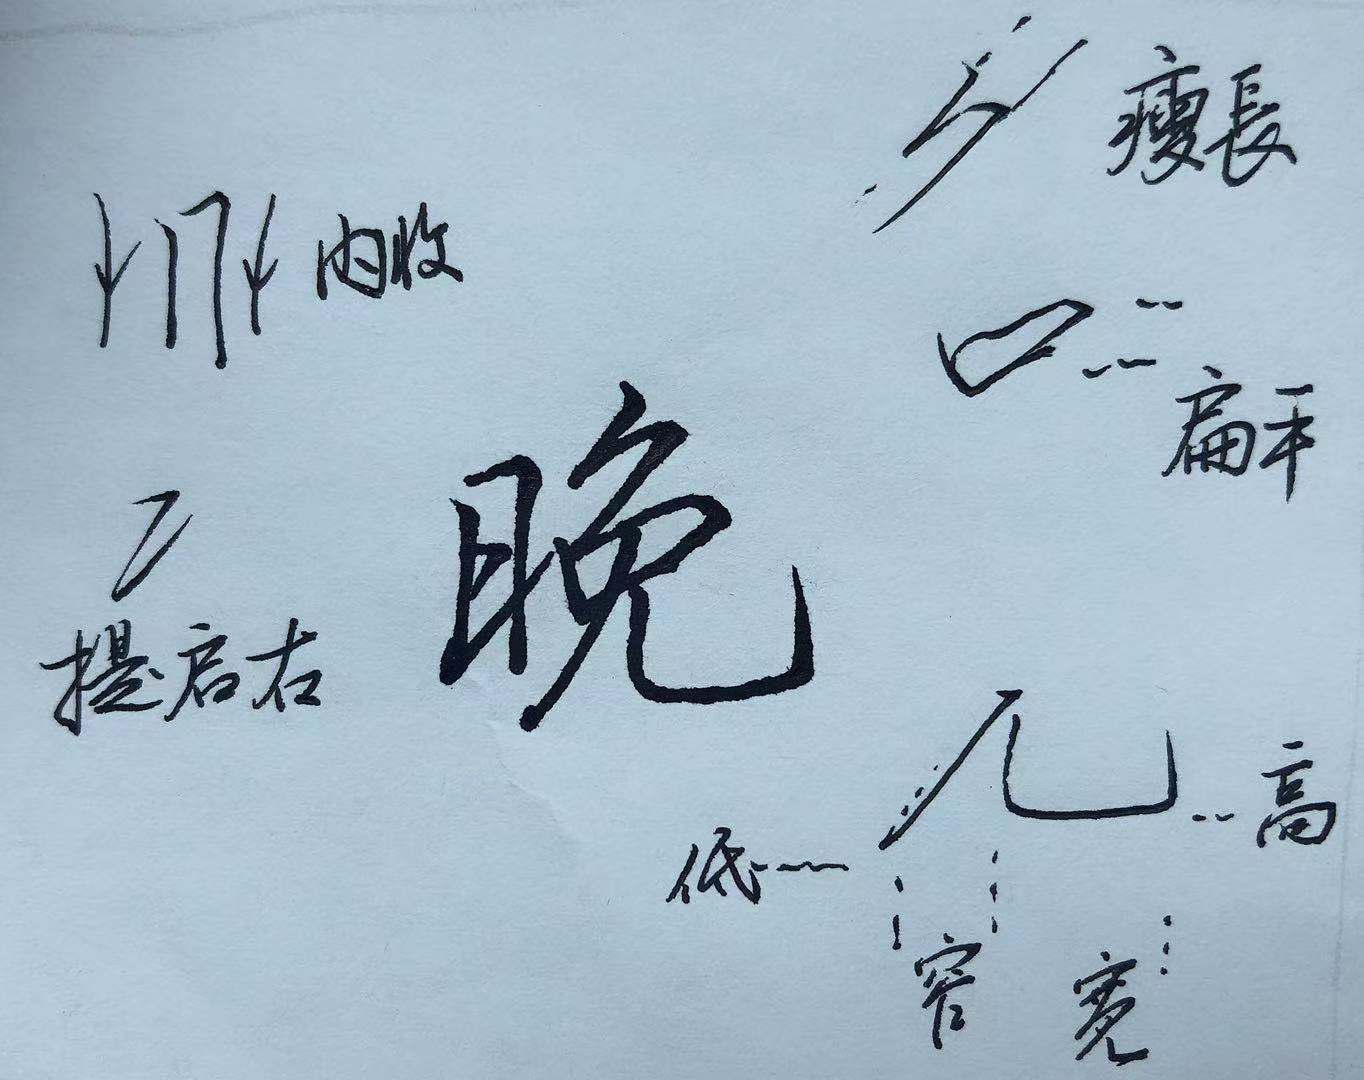 瘦長
内收
扁平
晚
提启右
高
低
窄
宽